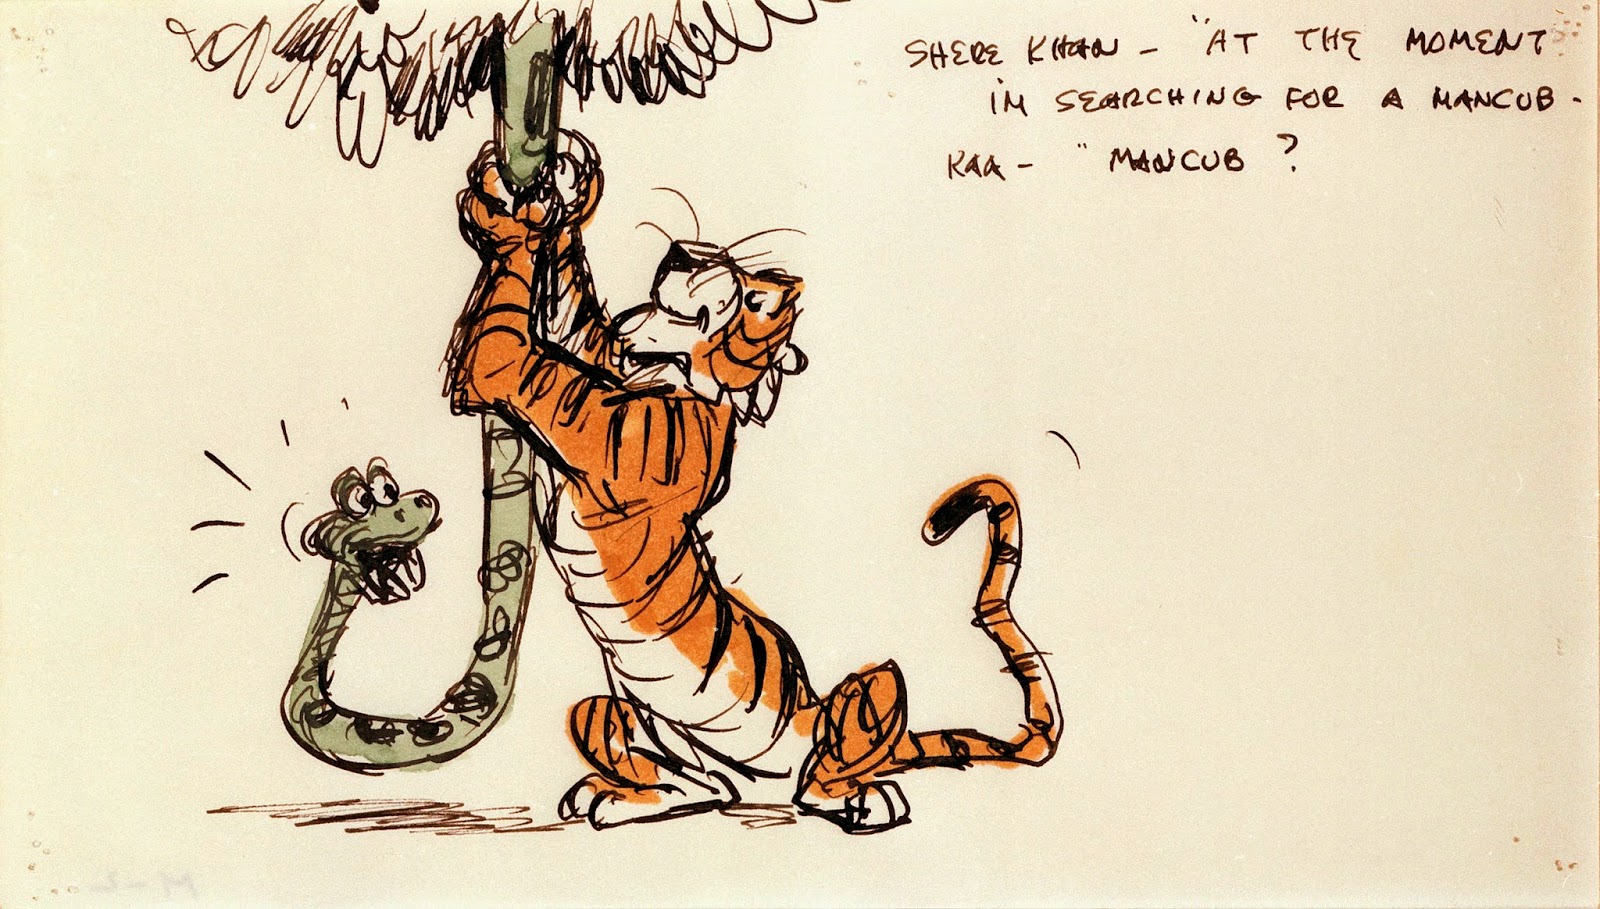 SHERE KHAN - "AT THE MOMENT
I'M SEARCHING FOR A MANCUB -
KAA - "MANCUB ?